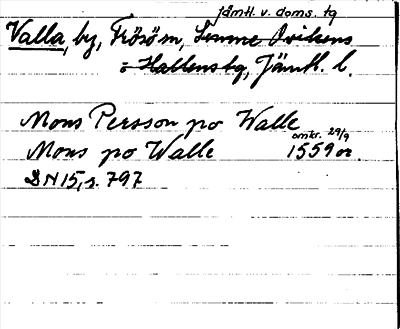 jämtl. v. doms. tg
Valla, by, Frösö sn, Sunne Ovikens
o Hallens tg, Jämtl. l.
Mons Persson po Walle
omkr. 29/9
Mons po Walle 1559 or.
DN 15, s. 797